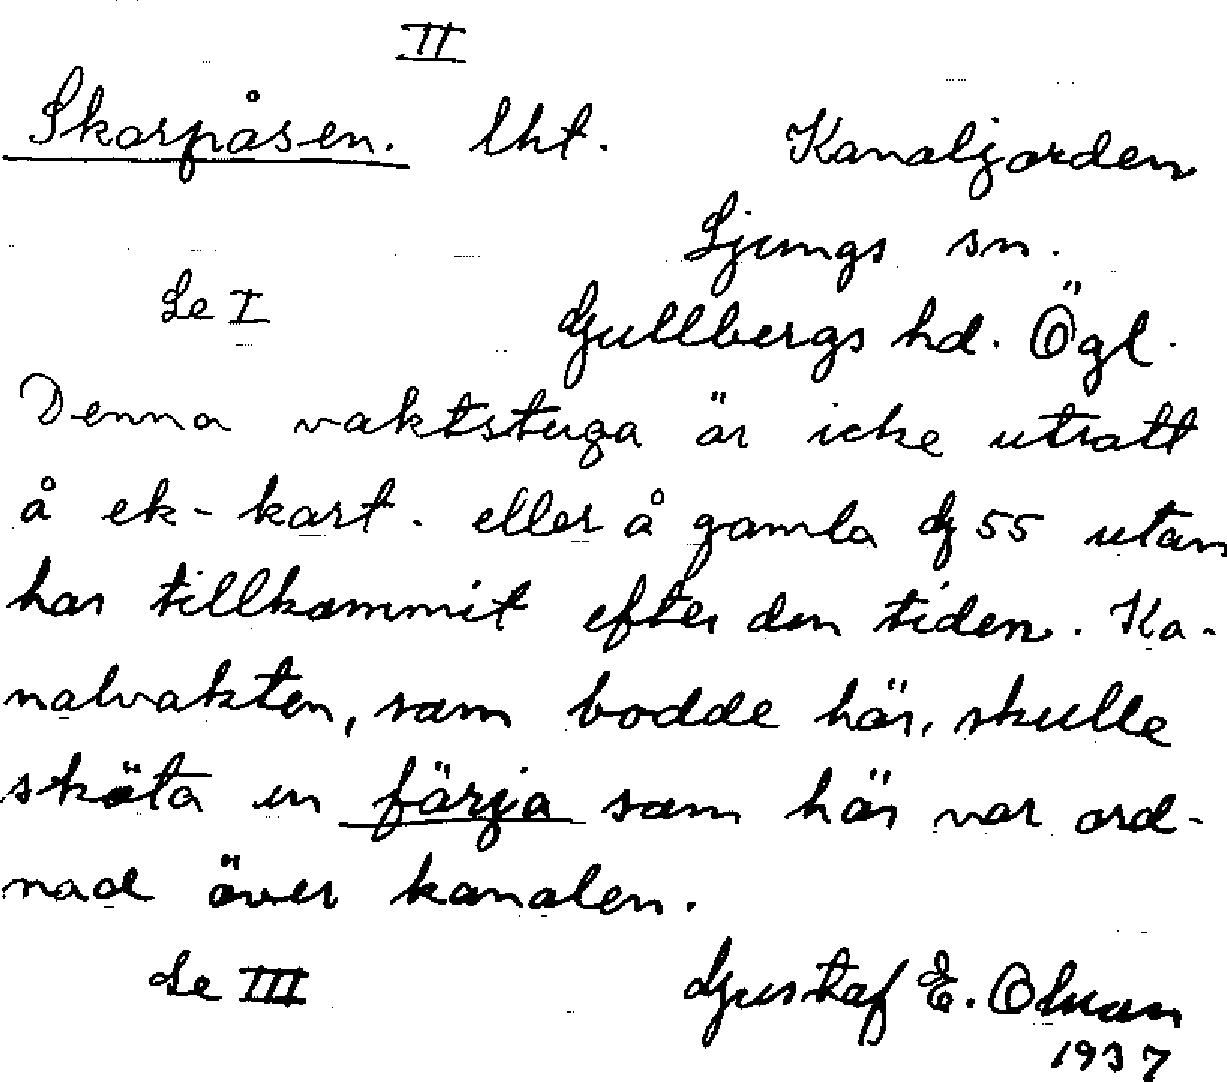 II
Skarpåsen. lht. Kanaljorden
Ljungs sn.
Se I Gullbergs hd. Ögl.
Denna vaktstuga är icke utsatt
å ek-kart. eller å gamla G 55 utan
har tillkommit efter den tiden. Ka-
nalvakten, som bodde här, skulle
sköta en färja som här var ord-
nad över kanalen.
Se III Gustaf E. Olsson
1937